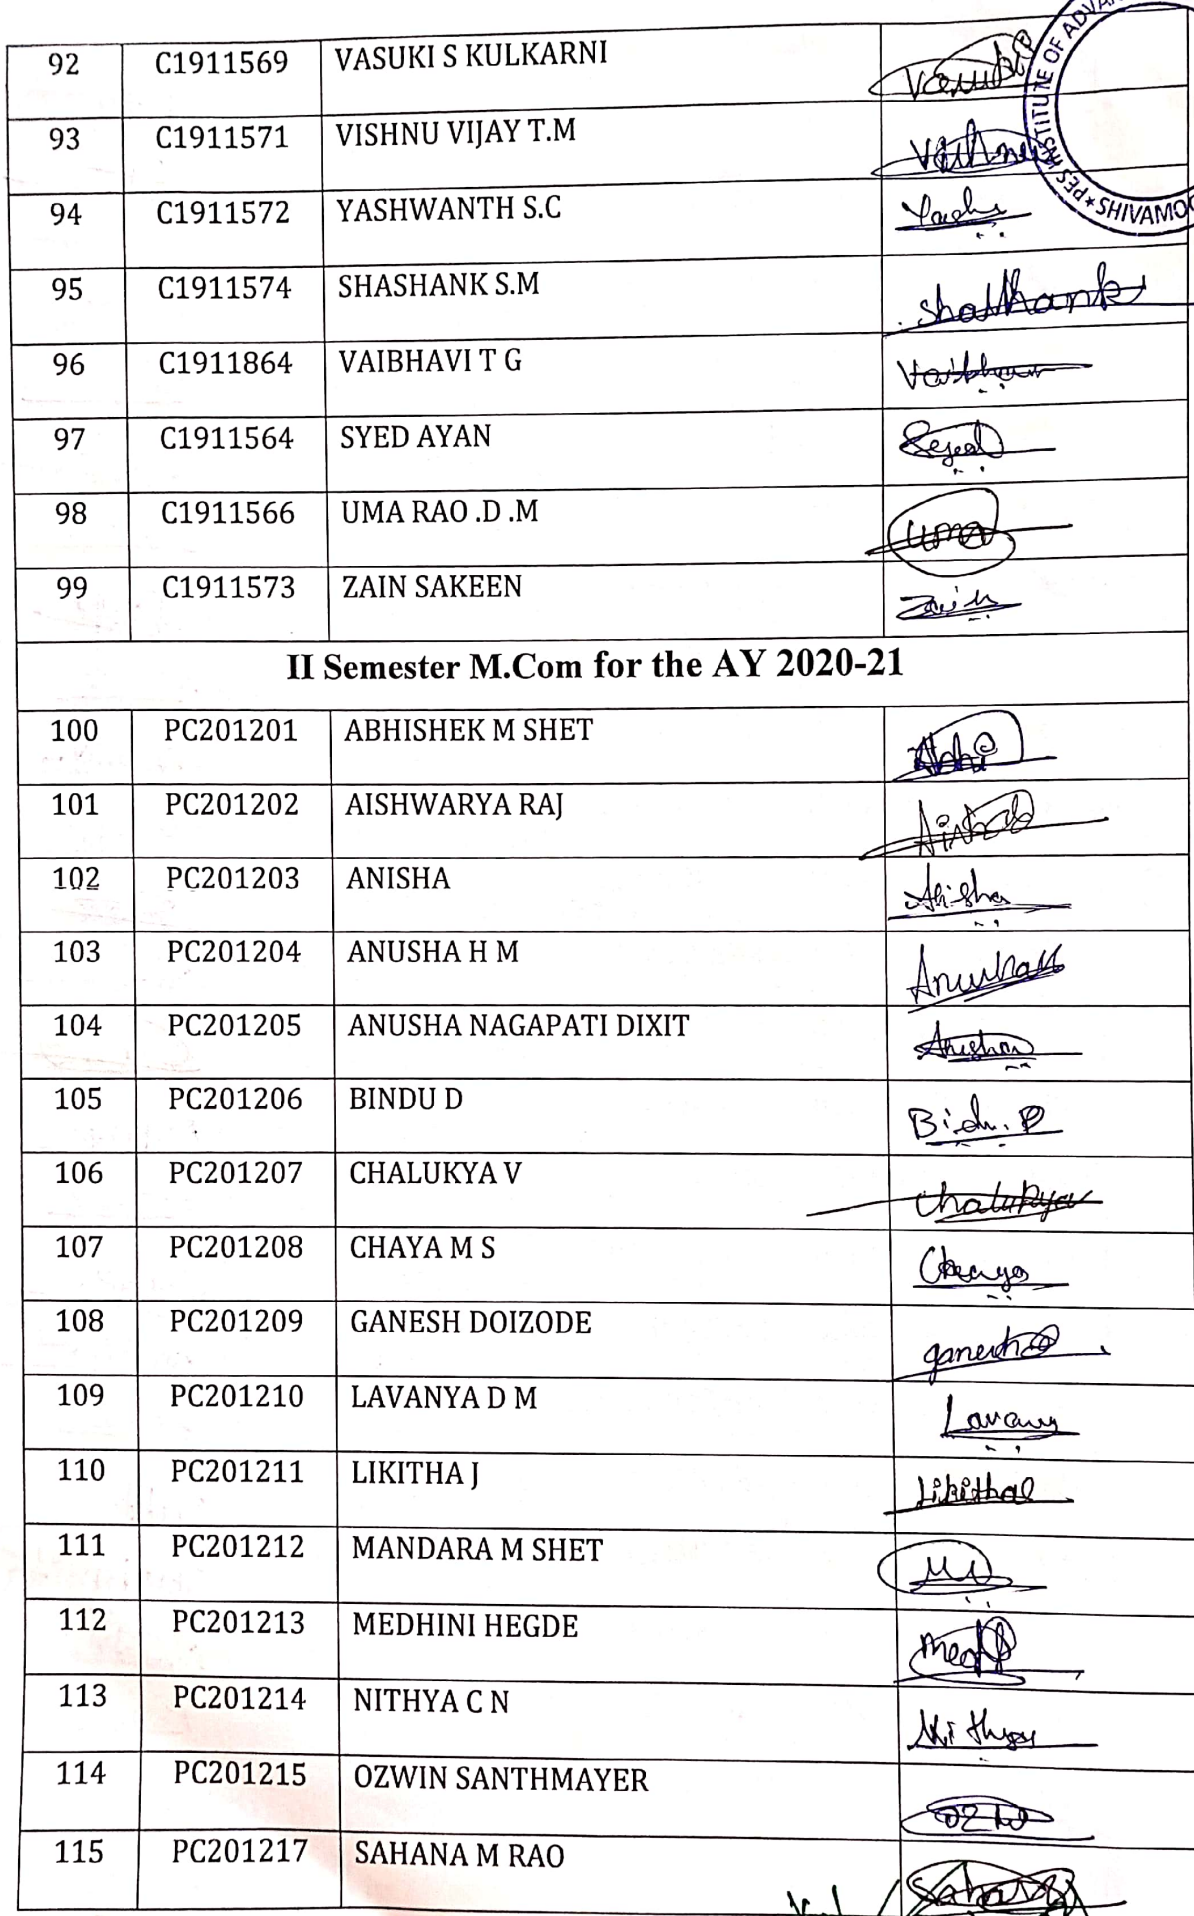 92 C1911569 VASUKI S KULKARNI Vasuki
93 C1911571 VISHNU VIJAY T.M Vishnu
94 C1911572 YASHWANTH S.C Yashu
95 C1911574 SHASHANK S.M Shashank
96 C1911864 VAIBHAVI T G
97 C1911564 SYED AYAN
98 C1911566 UMA RAO .D .M Uma
99 C1911573 ZAIN SAKEEN Zain
PES INSTITUTE OF SHIVAMO
II Semester M.Com for the AY 2020-21
100 PC201201 ABHISHEK M SHET Abhi
101 PC201202 AISHWARYA RAJ
102 PC201203 ANISHA Anisha
103 PC201204 ANUSHA H M
104 PC201205 ANUSHA NAGAPATI DIXIT
105 PC201206 BINDU D
106 PC201207 CHALUKYA V
107 PC201208 CHAYA M S Chaya
108 PC201209 GANESH DOIZODE
109 PC201210 LAVANYA D M
110 PC201211 LIKITHA J
111 PC201212 MANDARA M SHET
112 PC201213 MEDHINI HEGDE
113 PC201214 NITHYA C N Nithya
114 PC201215 OZWIN SANTHMAYER
115 PC201217 SAHANA M RAO